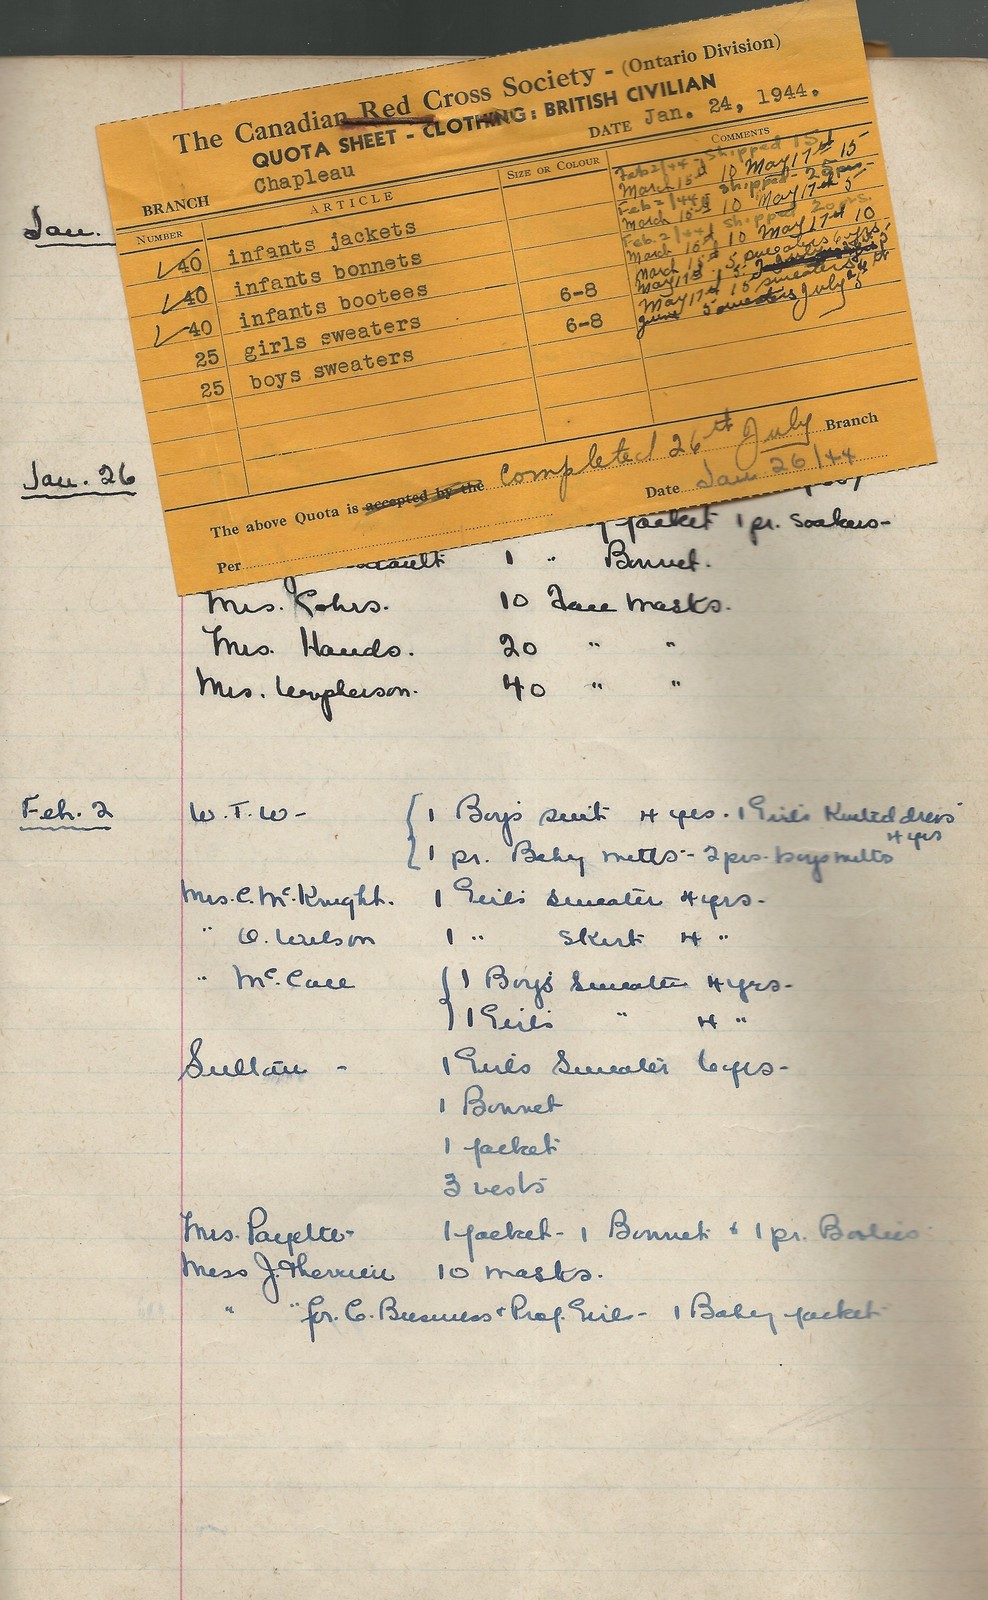 The Canadian Red Cross Society - (Ontario Division)
QUOTA SHEET - CLOTHING: BRITISH CIVILIAN
BRANCH Chapleau DATE Jan. 24, 1944.
NUMBER ARTICLE SIZE OR COLOUR COMMENTS
40 infants jackets Feb 2/44 - shipped 15
March 15th 10 May 17th 15
40 infants bonnets Feb 2/44 shipped - 25
March 15th 10 May 17th 5
40 infants bootees Feb. 2/44 shipped 20 prs.
March 15th 10 May 17th 10
25 girls sweaters 6-8 March 15th 5 sweaters 6 yrs.
May 17th 15
25 boys sweaters 6-8 May 17th 15 sweaters
June 5 sweaters July 5
The above Quota is accepted by the completed 26th July Branch
Per Date Jan 26/44
Jan.
Jan. 26
jacket 1 pr. soakers-
1 " Bonnet.
Mrs. 10 Face Masks.
Mrs. Hands. 20 " "
Mrs. 40 " "
Feb. 2 W.T.W- 1 Boys suit 4 yrs. 1 Girls Knitted dress
4 yrs
1 pr. Baby mitts - 2 prs. boys mitts
Mrs. C. McKnight. 1 Girls Sweater 4 yrs-
" O. Wilson 1 " Skirt 4 "
" 1 Boys Sweater 4 yrs-
1 Girls " 4 "
Sultan - 1 Girls Sweater 6 yrs-
1 Bonnet
1 jacket
3 vests
Mrs. Payette- 1 jacket- 1 Bonnet & 1 pr. Booties
Miss J. Therrien 10 masks.
" " for C. Business & Prof. Girls- 1 Baby jacket